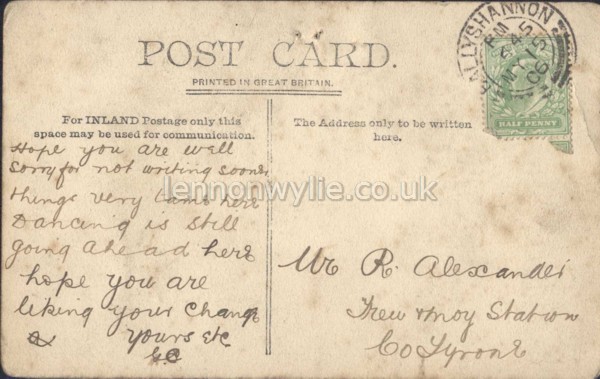 POST CARD.
PRINTED IN GREAT BRITAIN.
For INLAND Postage only this
space may be used for communication.
The Address only to be written
here.
Hope you are well
Sorry for not writing sooner
things very came here
Dancing is still
going ahead here
hope you are
liking your change
Yours etc
G.C
Mr R. Alexander
Trew &moy Station
Co Tyrone
BALLYSHANNON
HALF PENNY
lennonwylie.co.uk